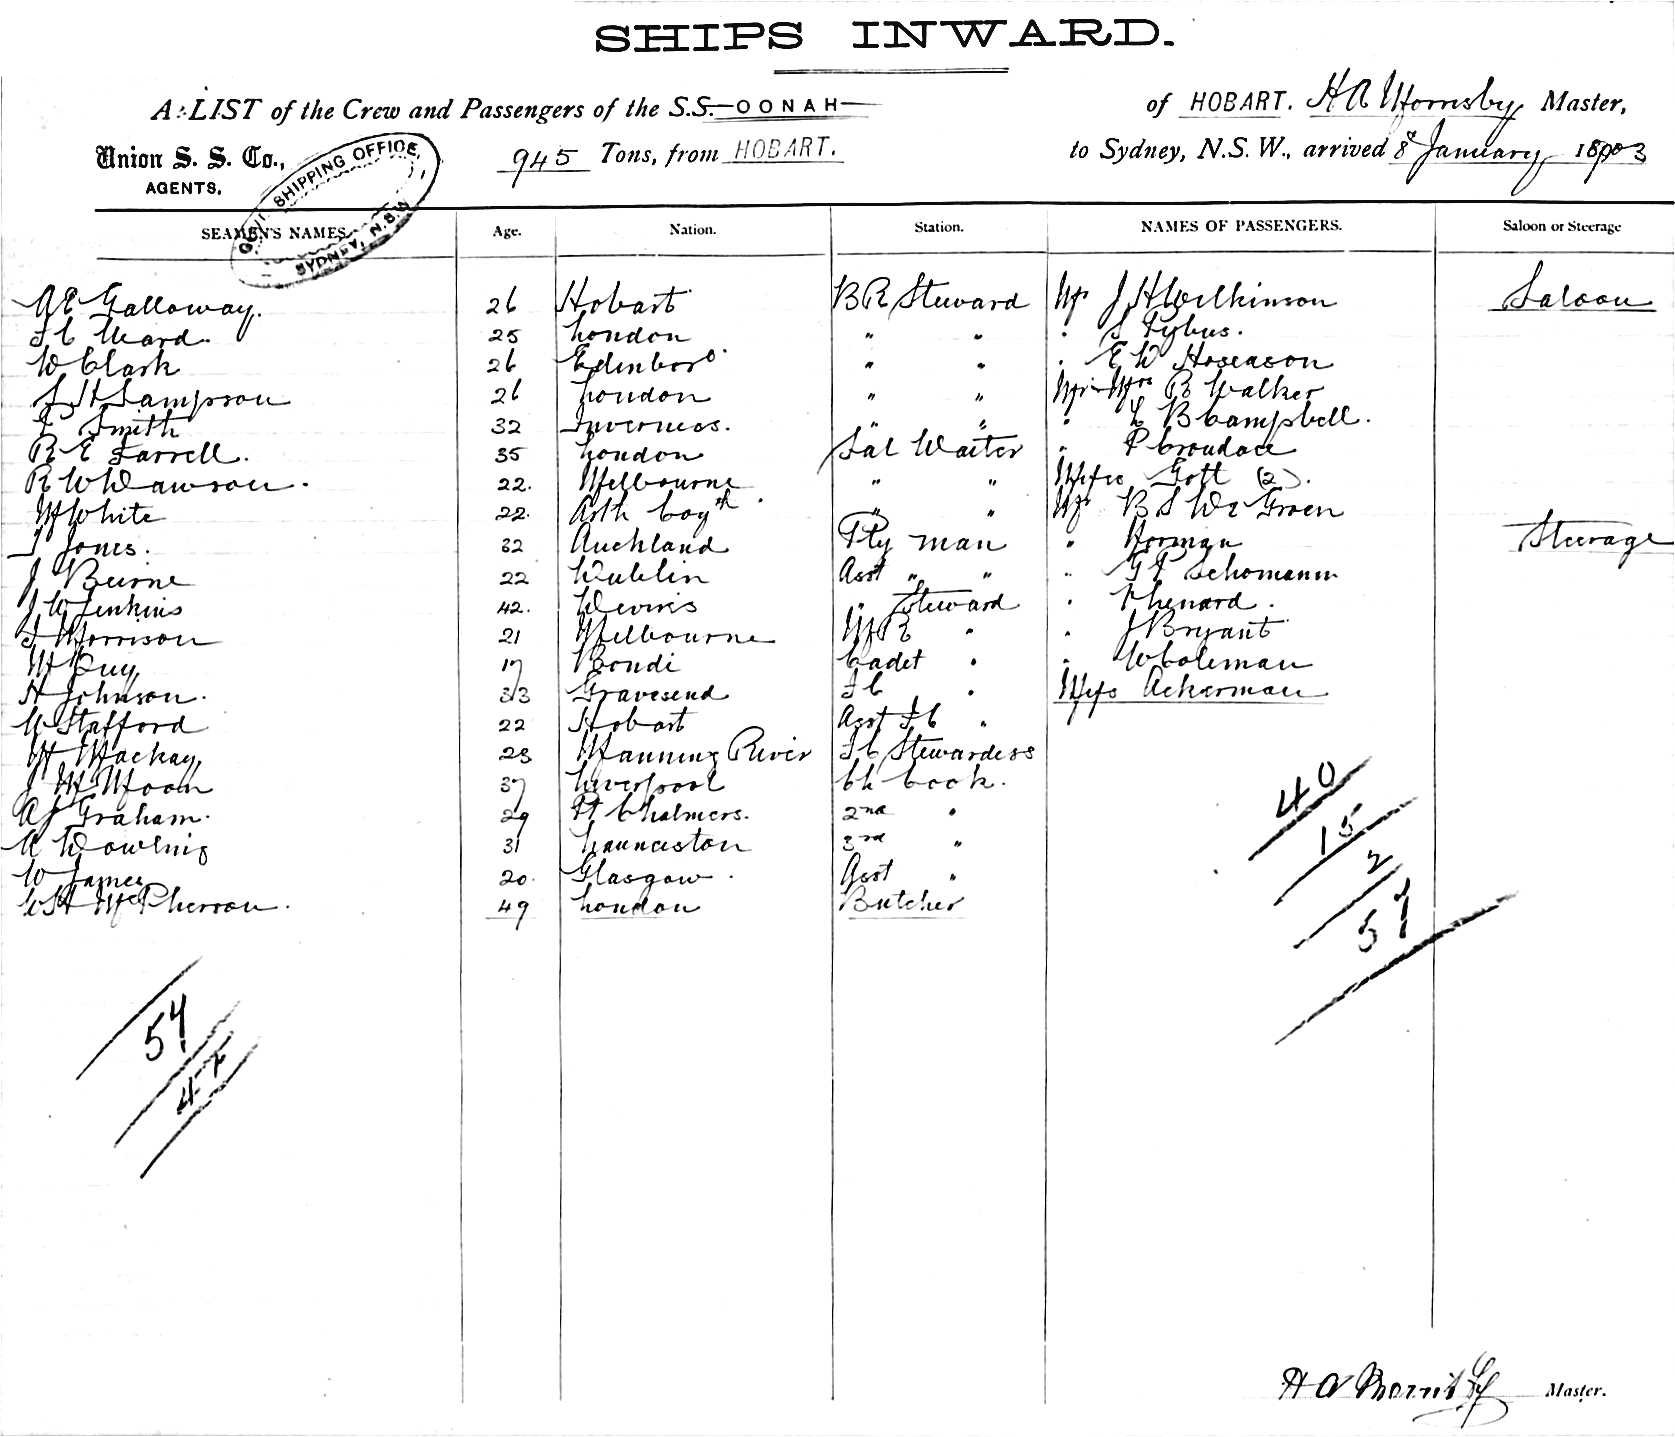 SHIPS INWARD.
A LIST of the Crew and Passengers of the S.S. OONAH of HOBART. H A Mornsby Master,
Union S. S. Co., AGENTS. 945 Tons, from HOBART. to Sydney, N.S.W., arrived 8 January 1903
SHIPPING OFFICE, SYDNEY, N.S.W.
SEAMEN'S NAMES. Age. Nation. Station. NAMES OF PASSENGERS. Saloon or Steerage
A E Galloway. 26 Hobart B R Steward Mr J H Wilkinson Saloon
Ward. 25 London " " " S Tybus.
W Clark 26 Edinboro " " " E W Hoseason
Sampson 26 London " " Mr & Mrs R Walker
Smith 32 Inverness. " " " B Campbell.
R E Farrell. 35 London Sal Waiter " Croudace
R W Dawson. 22. Melbourne " " Gott (2).
White 22. " " Mr B S Groen
Jones. 32 Auckland Pty man " Horman Steerage
J Beirne 22 Dublin Asst " " " Schomann
J W Jenkins 42. " Steward "
Morrison 21 Melbourne " " J Bryant
Guy 17 Bondi Cadet " " W Coleman
H Johnson. 33 Gravesend " Ackerman
Stafford 22 Hobart Asst "
Mackay, 23 Manning River Stewardess
J Moon 37 Liverpool Ch Cook.
A J Graham. 29 Pt Chalmers. 2nd "
Dowling 31 Launceston 3rd "
W James 20. Glasgow. Asst "
McPherson. 49 London Butcher
40
15
2
57
57
H A Master.